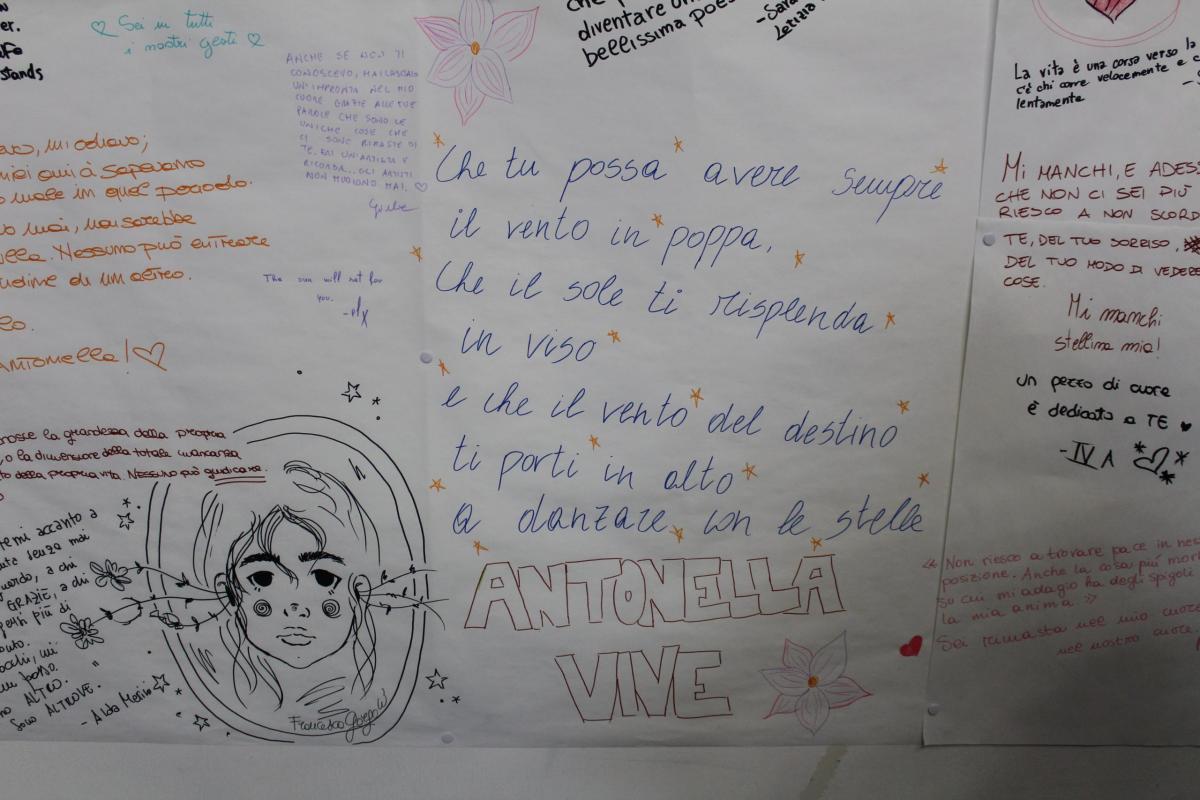 er.
stands
Sei in tutti
i nostri gesti
ANCHE SE NON TI
CONOSCEVO, HAI LASCIATO
UN'IMPRONTA NEL MIO
CUORE GRAZIE ALLE TUE
PAROLE CHE SONO LE
UNICHE COSE CHE
CI SONO RIMASTE DI
TE. ERI UN'ARTISTA E
RICORDA... GLI ARTISTI
NON MUOIONO MAI.
diventare un
bellissima poes
-Sara
Letizia
La vita è una corsa verso la
c'è chi corre velocemente e c
lentamente
, mi odiavo;
miei amici sapevamo
male in quel periodo.
mai, mai sarebbe
. Nessuno può entrare
udine di un altro.
lo.
ANTONELLA!
The sun will not for
you.
Che tu possa avere sempre
il vento in poppa,
Che il sole ti risplenda
in viso
e che il vento del destino
ti porti in alto
a danzare con le stelle
ANTONELLA
VIVE
MI MANCHI, E ADESS
CHE NON CI SEI PIÙ
RIESCO A NON SCORD
TE, DEL TUO SORRISO,
DEL TUO MODO DI VEDERE
COSE.
Mi manchi
stellina mia!
un pezzo di cuore
è dedicato a TE
-IV A
nosce la grandezza della propria
o la dimensione della totale mancanza
della propria vita. Nessuno può giudicare.
temi accanto a
senza mai
, a chi
GRAZIE, a chi
persi più di
occhi, mi
posso.
no ALTRO.
Sono ALTROVE."
- Alda Merini
Francesca
« Non riesco a trovare pace in nes
posizione. Anche la cosa più mor
su cui mi adagio ha degli spigoli
la mia anima »
Sei rimasta nel mio cuore
nel nostro cuore